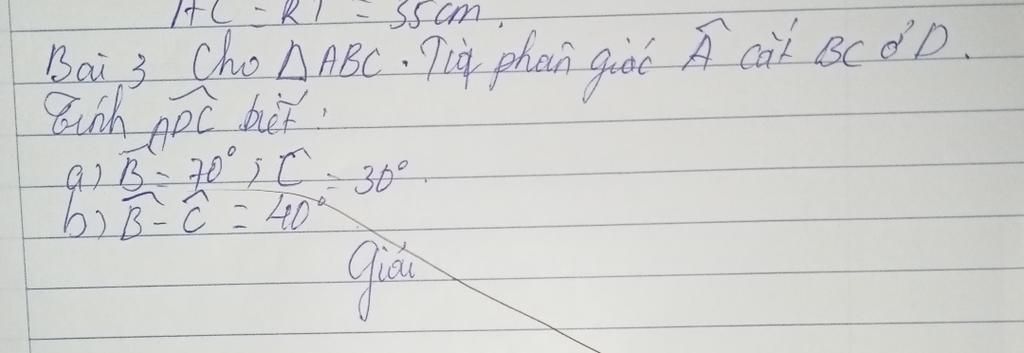 AC = RT = 35cm.
Bài 3 Cho △ABC. Tia phân giác Â cắt BC ở D.
Tính ADC biết:
a) B = 70° ; C = 30°.
b) B - C = 40°
Giải